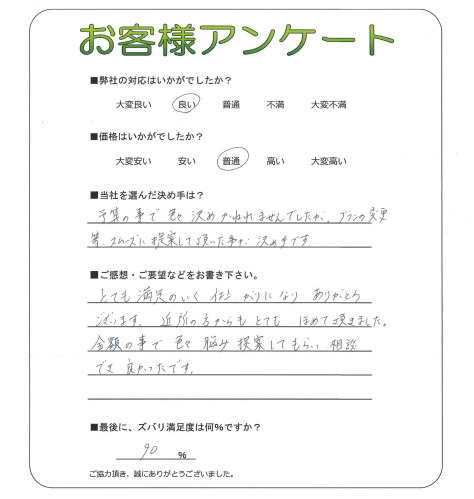 お客様アンケート
■弊社の対応はいかがでしたか？
大変良い 良い 普通 不満 大変不満
■価格はいかがでしたか？
大変安い 安い 普通 高い 大変高い
■当社を選んだ決め手は？
予算の事で色々決めかねれませんでしたが、プランの変更
等、スムーズに提案して頂いた事が決め手です。
■ご感想・ご要望などをお書き下さい。
とても満足のいく仕上がりになりありがとう
ございます。近所の方からもとてもほめて頂きました。
金額の事で色々悩み提案してもらい相談
でき良かったです。
■最後に、ズバリ満足度は何％ですか？
90 ％
ご協力頂き、誠にありがとうございました。